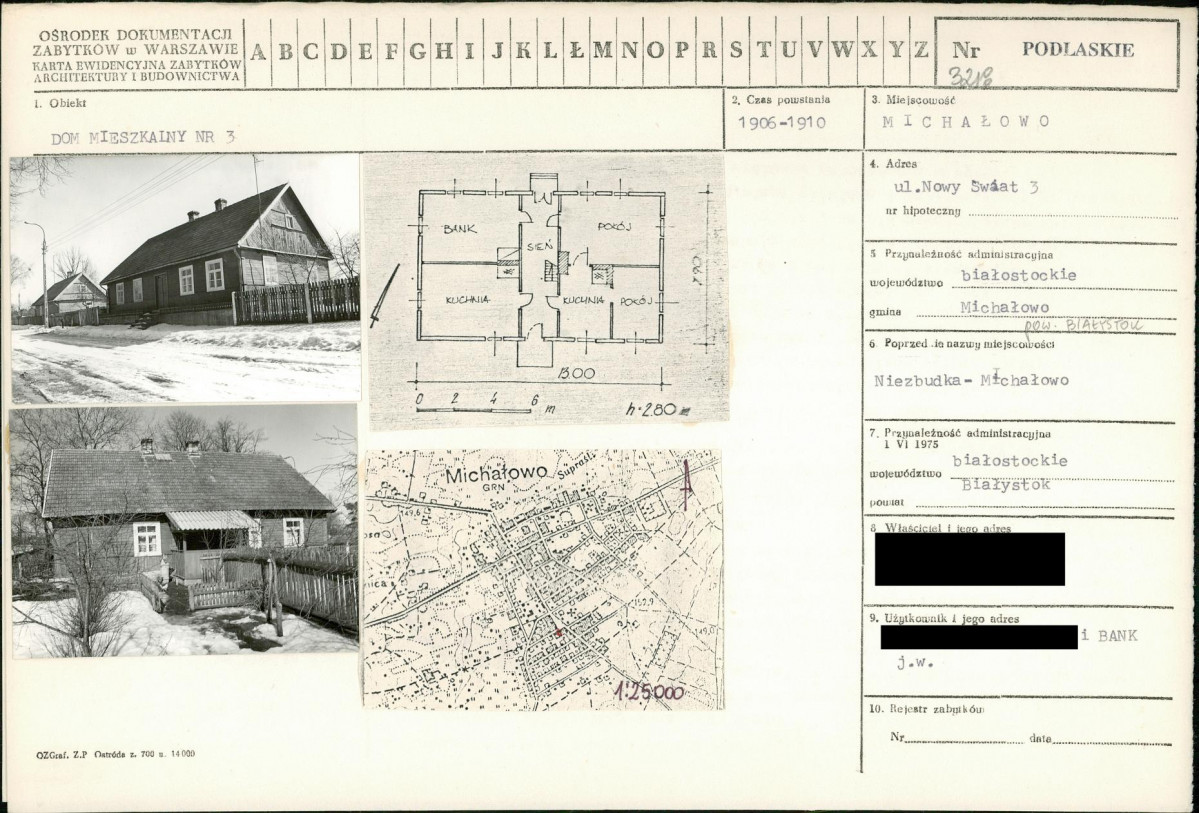 OŚRODEK DOKUMENTACJI
ZABYTKÓW w WARSZAWIE
KARTA EWIDENCYJNA ZABYTKÓW
ARCHITEKTURY I BUDOWNICTWA
A B C D E F G H I J K L Ł M N O P R S T U V W X Y Z
Nr PODLASKIE
1. Obiekt
DOM MIESZKALNY NR 3
2. Czas powstania
1906-1910
3. Miejscowość
MICHAŁOWO
4. Adres
ul.Nowy Świat 3
nr hipoteczny
5 Przynależność administracyjna
województwo białostockie
gmina Michałowo
pow. BIAŁYSTOK
6 Poprzednie nazwy miejscowości
Niezbudka- Michałowo
7. Przynależność administracyjna
1 VI 1975
województwo białostockie
Białystok
powiat
8 Właściciel i jego adres
9. Użytkownik i jego adres
i BANK
j.w.
10. Rejestr zabytków
Nr data
BANK
SIEŃ
POKÓJ
KUCHNIA
KUCHNIA
POKÓJ
13.00
0 2 4 6 m
h-2.80 m
Michałowo
GRN
Supraśl
149,6
nica
152,9
149,0
1:25000
OZGraf. Z.P Ostróda z. 700 n. 14000